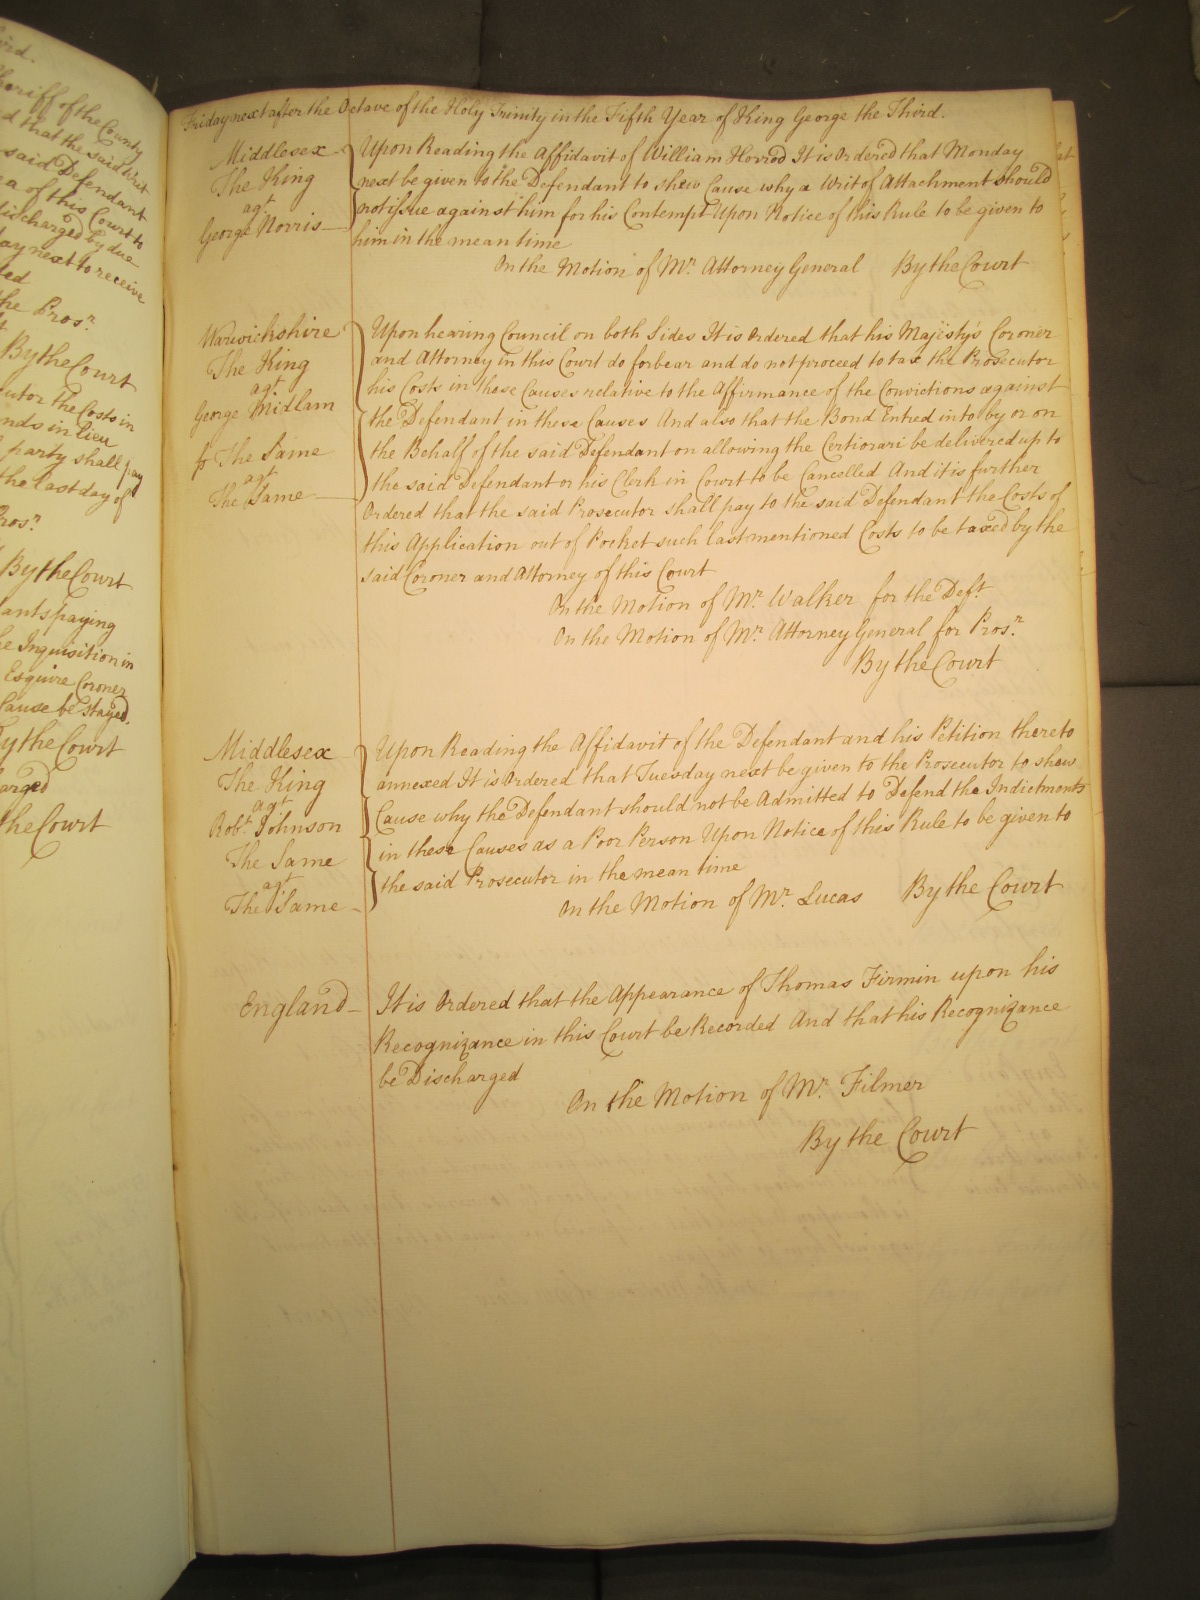 hird.
Sheriff of the County
d that the said Writ
said Defendant
ea of this Court to
discharged by due
day next to receive
the Prosr.
By the Court
cutor the Costs in
nds in lieu
party shall pay
the last day of
Prosr.
By the Court
dants paying
he Inquisition in
Esquire Coroner
Cause be stayed.
By the Court
arged
the Court
Friday next after the Octave of the Holy Trinity in the Fifth Year of King George the Third.
Middlesex
The King
agt
George Norris
Upon Reading the Affidavit of William Horrod It is Ordered that Monday
next be given to the Defendant to shew Cause why a Writ of Attachment should
not issue against him for his Contempt Upon Notice of this Rule to be given to
him in the mean time
On the Motion of Mr. Attorney General By the Court
Warwickshire
The King
agt
George Midlam
The Same
agt
The Same
Upon hearing Council on both Sides It is Ordered that his Majisty's Coroner
and Attorney in this Court do forbear and do not proceed to tax the Prosecutor
his Costs in these Causes relative to the Affirmance of the Convictions against
the Defendant in these Causes And also that the Bond Entred into by or on
the Behalf of the said Defendant on allowing the Certiorari be delivered up to
the said Defendant or his Clerk in Court to be Cancelled And it is further
Ordered that the said Prosecutor shall pay to the said Defendant the Costs of
this Application out of Pocket such last mentioned Costs to be taxed by the
said Coroner and Attorney of this Court
On the Motion of Mr. Walker for the Deft.
On the Motion of Mr. Attorney General for Prosr.
By the Court
Middlesex
The King
agt
Robt. Johnson
The Same
agt
The Same
Upon Reading the Affidavit of the Defendant and his Petition thereto
annexed It is Ordered that Tuesday next be given to the Prosecutor to shew
Cause why the Defendant should not be Admitted to Defend the Indictments
in these Causes as a Poor Person Upon Notice of this Rule to be given to
the said Prosecutor in the mean time
On the Motion of Mr. Lucas By the Court
England
It is Ordered that the Appearance of Thomas Firmin upon his
Recognizance in this Court be Recorded And that his Recognizance
be Discharged
On the Motion of Mr. Filmer
By the Court